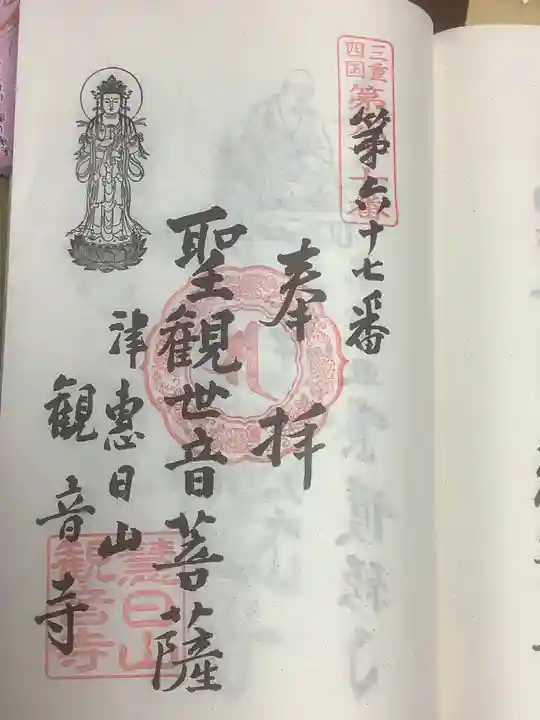 三重
四国
第六十七番
奉拝
聖観世音菩薩
津
恵日山
観音寺
慧日山
観音寺